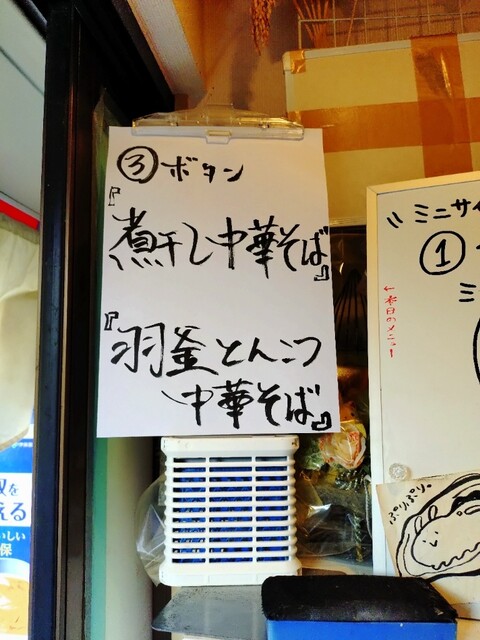 ③ボタン
『煮干し中華そば』
『羽釜とんこつ
中華そば』
ミニサイ
①
ミ
←本日のメニュー
ぷりぷり。
える
保